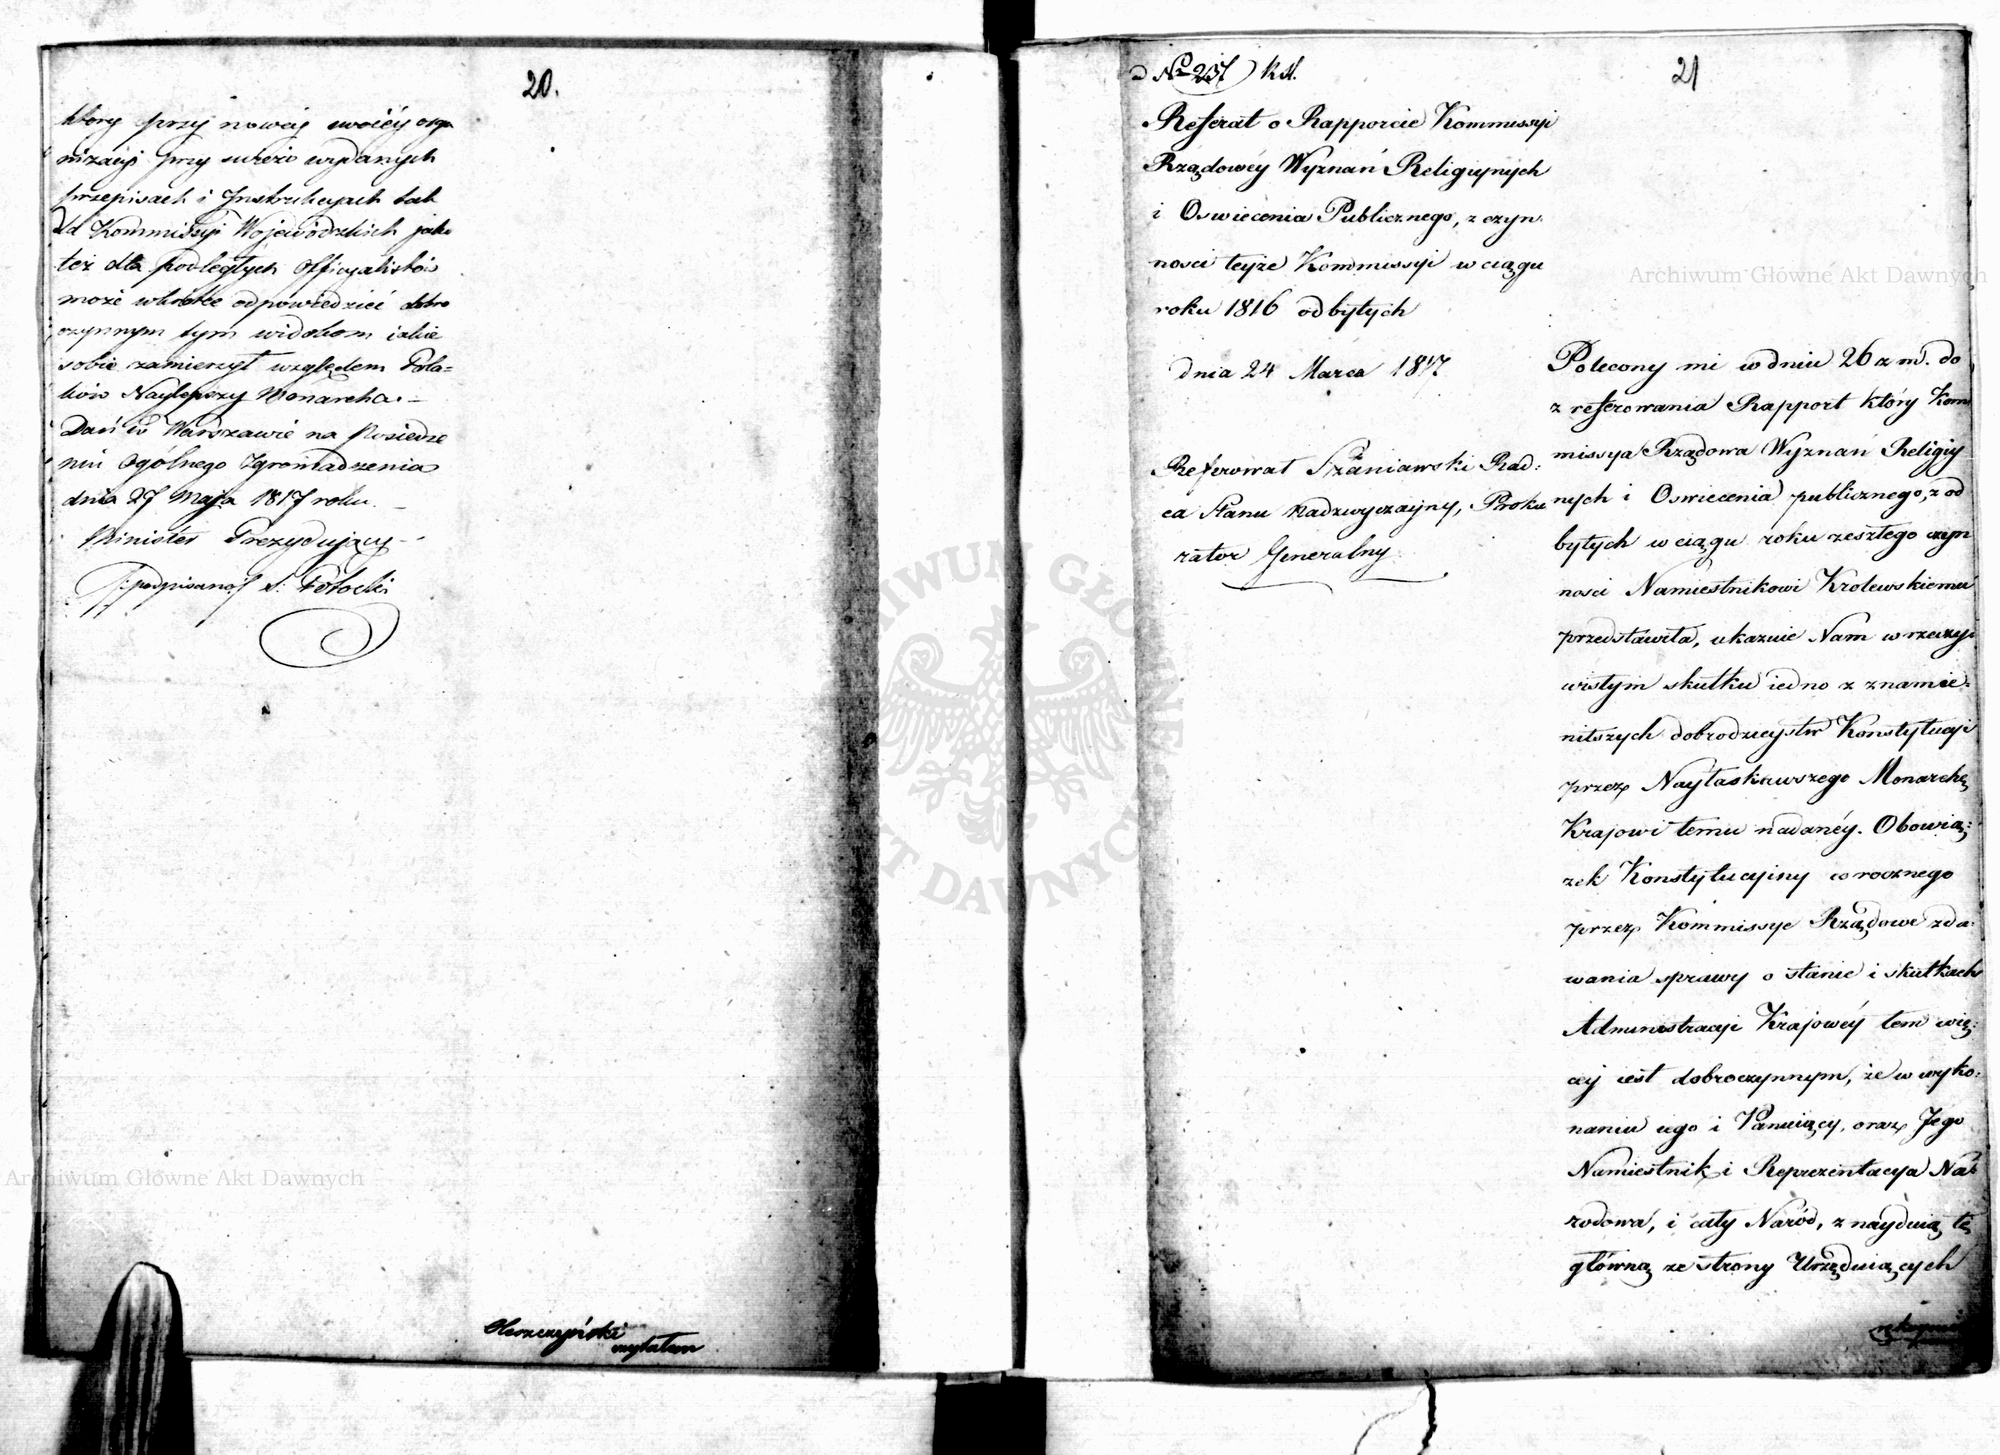 20.
który przy nowey swoiéy orga
nizacyi przy świeżo wydanych
przepisach i Instrukcyach tak
dla Kommissyi Woiewódzkich jako
też dla podległych Officyalistów
może wkrótce odpowiedzieć dobro
czynnym tym widokom iakie
sobie zamierzył względem Pola=
ków Naylepszy Monarcha.—
Dan w Warszawie na Posiedze
niu Ogólnego Zgromadzenia
dnia 27 Maja 1817 roku.
Minister Prezydujący
/:podpisano/ S: Potocki
czytałem
Archiwum Główne Akt Dawnych
21
Nro 237 Kd.
Referat o Rapporcie Kommissyi
Rządowéy Wyznań Religiynych
i Oswiecenia Publicznego, z czyn
nosci teyże Kommissyi w ciągu
roku 1816 odbytych
dnia 24 Marca 1817
Referował Szaniawski Rad:
ca Stanu Nadzwyczayny, Proku
rator Generalny
Polecony mi w dniu 26 z m. do
zreferowania Rapport który Kom
missya Rządowa Wyznań Religiy
nych i Oswiecenia publicznego, z od
bytych w ciągu roku zeszłego czyn
nosci Namiestnikowi Krolewskiemu
przedstawiła, ukazuie Nam w rzeczy
wistym skutku iedno z znamie=
nitszych dobrodzieystw Konstytucyi
przez Nayłaskawszego Monarchę
Krajowi temu nadanéy. Obowią=
zek Konstytucyiny corocznego
przez Kommissye Rządowe zda=
wania sprawy o stanie i skutkach
Administracyi Krajowéy tem wię=
cej iest dobroczynnym, że w wyko=
naniu iego i Panuiący, oraz Jego
Namiestnik i Reprezentacya Na=
rodowa, i cały Naród, znayduią tę
główną ze strony Urzęduiących
rękoymię
Archiwum Główne Akt Dawnych
ARCHIWUM GŁÓWNE AKT DAWNYCH